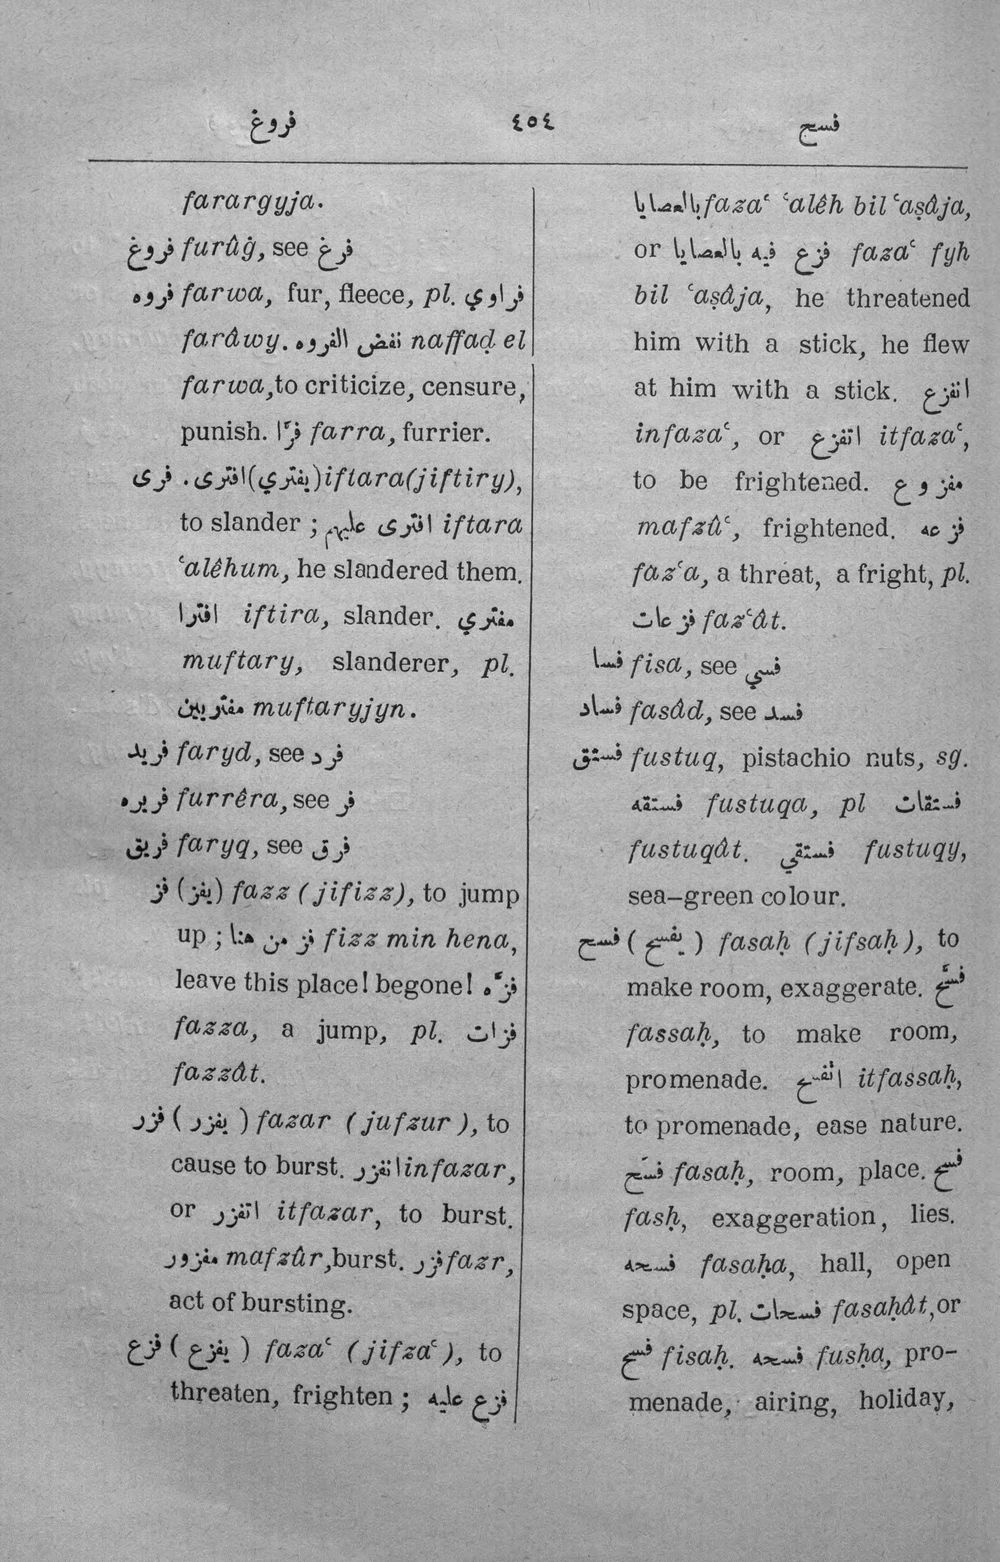 فروغ ٤٥٤ فسح
farargyja.
فروغ furûġ, see فرغ
فروه farwa, fur, fleece, pl. فراوي
farâwy. نفض الفروه naffaḍ el
farwa, to criticize, censure,
punish. فرّا farra, furrier.
فرى . افترى (يفتري) iftara (jiftiry),
to slander ; افترى عليهم iftara
ʿalêhum, he slandered them.
افترا iftira, slander. مفتري
muftary, slanderer, pl.
مفتريين muftaryjyn.
فريد faryd, see فرد
فريره furrêra, see فر
فريق faryq, see فرق
فز (يفز) fazz (jifizz), to jump
up ; فز من هنا fizz min hena,
leave this place! begone! فزّه
fazza, a jump, pl. فزات
fazzât.
فزر ( يفزر ) fazar (jufzur), to
cause to burst. انفزر infazar,
or اتفزر itfazar, to burst.
مفزور mafzûr, burst. فزر fazr,
act of bursting.
فزع ( يفزع ) fazaʿ (jifzaʿ), to
threaten, frighten ; فزع عليه
بالعصايا fazaʿ ʿalêh bil ʿaṣâja,
or فزع فيه بالعصايا fazaʿ fyh
bil ʿaṣâja, he threatened
him with a stick, he flew
at him with a stick. انفزع
infazaʿ, or اتفزع itfazaʿ,
to be frightened. مفزوع
mafzûʿ, frightened. فزعه
fazʿa, a threat, a fright, pl.
فزعات fazʿât.
فسا fisa, see فسي
فساد fasâd, see فسد
فستق fustuq, pistachio nuts, sg.
فستقه fustuqa, pl فستقات
fustuqât. فستقي fustuqy,
sea-green colour.
فسح ( يفسح ) fasaḥ (jifsaḥ), to
make room, exaggerate. فسّح
fassaḥ, to make room,
promenade. اتفسح itfassaḥ,
to promenade, ease nature.
فسَح fasaḥ, room, place. فسح
fasḥ, exaggeration, lies.
فسحه fasaḥa, hall, open
space, pl. فسحات fasaḥât, or
فسح fisaḥ. فسحه fusḥa, pro-
menade, airing, holiday,